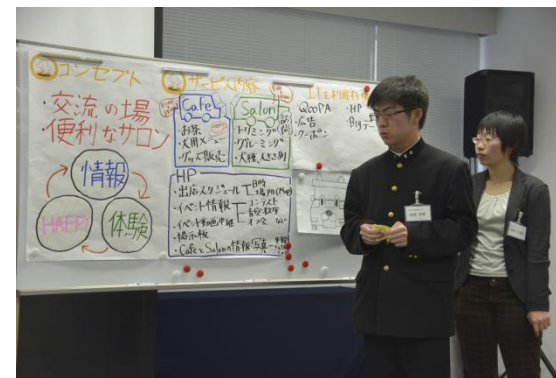 コンセプト
・交流の場
便利なサロン
情報
HAPPY
体験
サービス内容
Cafe
・お茶
・犬用メニュー
・グッズ販売
Salon
・トリミング
・グルーミング
・犬種、大きさ別
HP
・出店スケジュール
日時
場所(Map)
・イベント情報
コンテスト
・イベント動画中継
・掲示板
・CafeとSalonの情報
写真
ITを利用
・QooPA
・広告
・クーポン
・HP
・Big